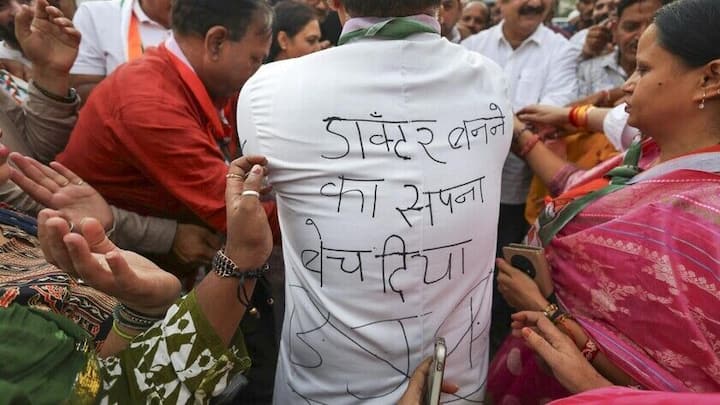 डॉक्टर बनने
का सपना
बेच दिया